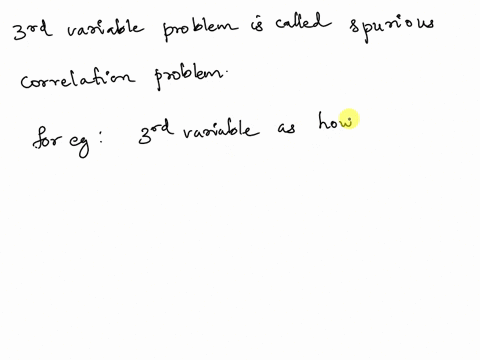 3rd variable problem is called spurious
correlation problem.
for eg: 3rd variable as how